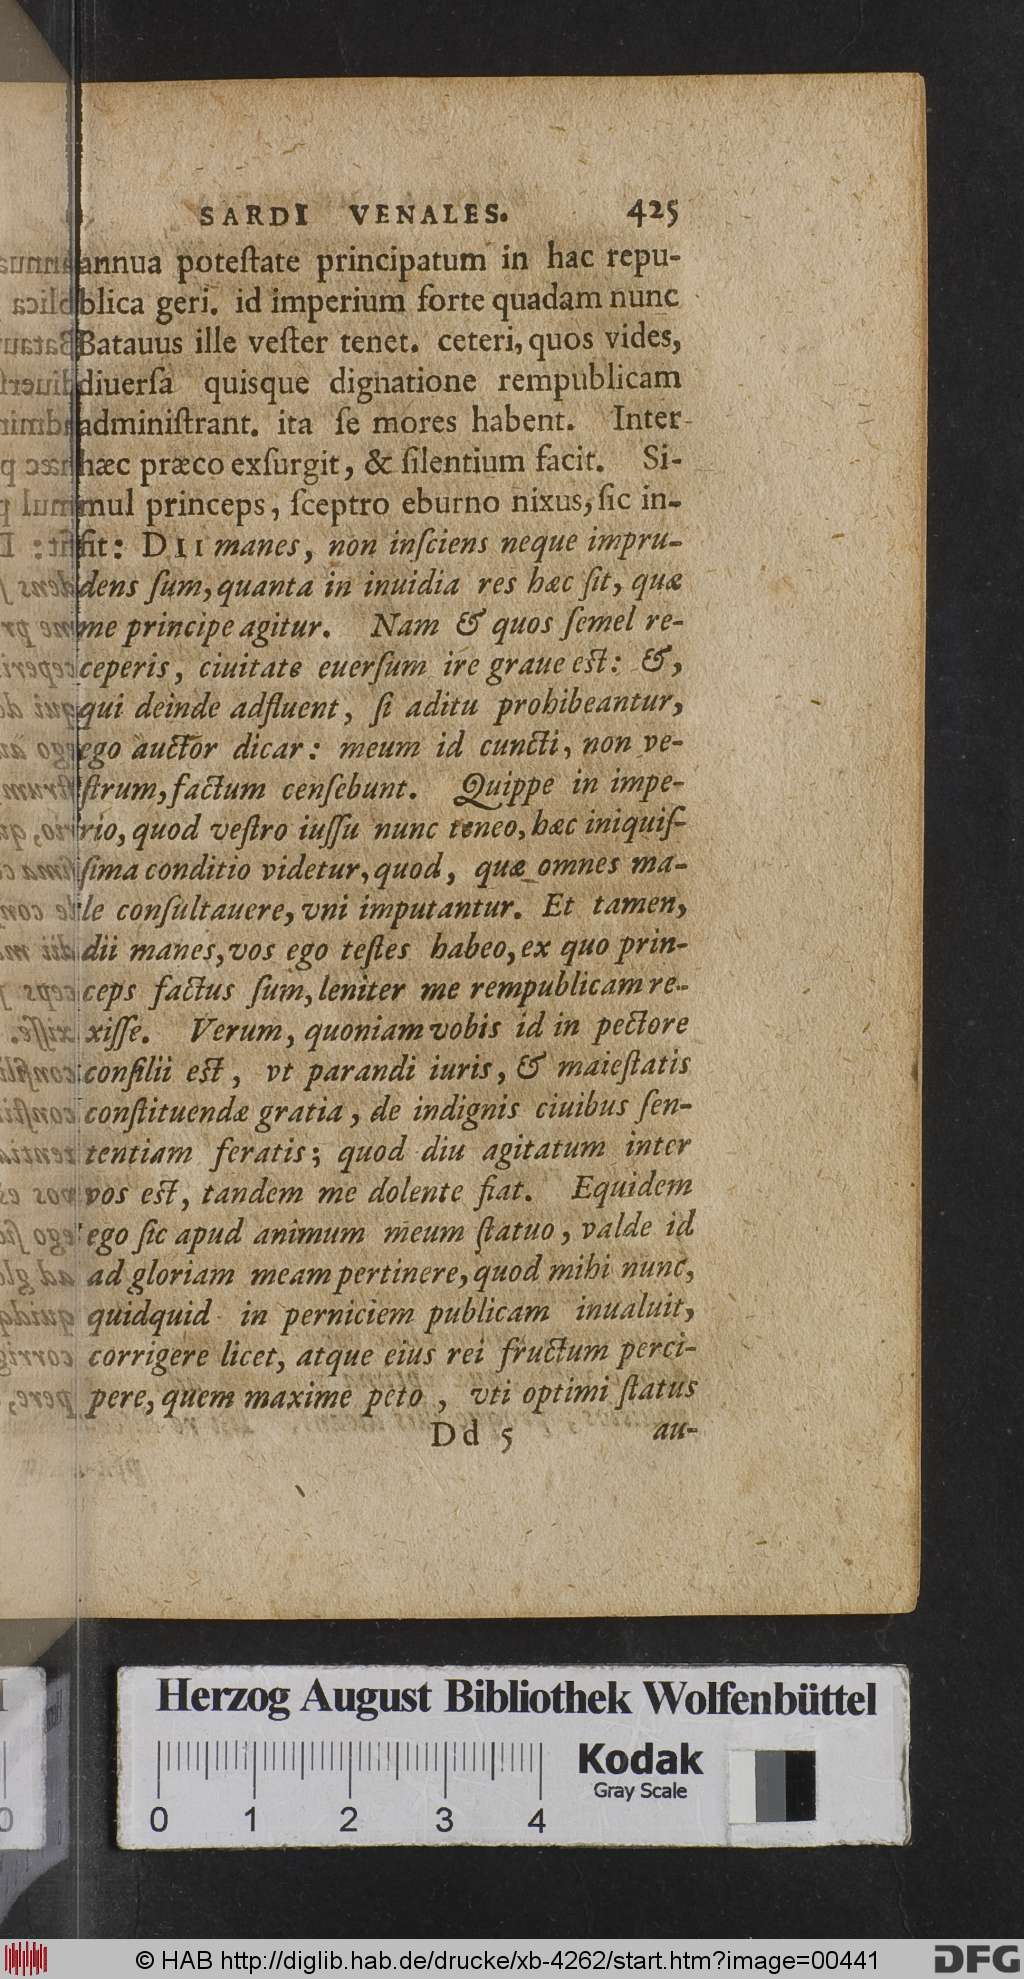 SARDI VENALES. 425
annua poteſtate principatum in hac repu-
blica geri. id imperium forte quadam nunc
Batauus ille veſter tenet. ceteri, quos vides,
diuerſa quisque dignatione rempublicam
adminiſtrant. ita ſe mores habent. Inter
hæc præco exſurgit, & ſilentium facit. Si-
mul princeps, ſceptro eburno nixus, ſic in-
fit: DII manes, non inſciens neque impru-
dens ſum, quanta in inuidia res hæc ſit, quæ
me principe agitur. Nam & quos ſemel re-
ceperis, ciuitate euerſum ire graue eſt: &,
qui deinde adfluent, ſi aditu prohibeantur,
ego auctor dicar: meum id cuncti, non ve-
ſtrum, factum cenſebunt. Quippe in impe-
rio, quod veſtro iuſſu nunc teneo, hæc iniquiſ-
ſima conditio videtur, quod, quæ omnes ma-
le conſultauere, vni imputantur. Et tamen,
dii manes, vos ego teſtes habeo, ex quo prin-
ceps factus ſum, leniter me rempublicam re-
xiſſe. Verum, quoniam vobis id in pectore
conſilii eſt, vt parandi iuris, & maieſtatis
conſtituendæ gratia, de indignis ciuibus ſen-
tentiam feratis; quod diu agitatum inter
vos eſt, tandem me dolente fiat. Equidem
ego ſic apud animum meum ſtatuo, valde id
ad gloriam meam pertinere, quod mihi nunc,
quidquid in perniciem publicam inualuit,
corrigere licet, atque eius rei fructum perci-
pere, quem maxime peto, vti optimi ſtatus
Dd 5 au-
Herzog August Bibliothek Wolfenbüttel
Kodak
Gray Scale
0 1 2 3 4
© HAB http://diglib.hab.de/drucke/xb-4262/start.htm?image=00441
DFG